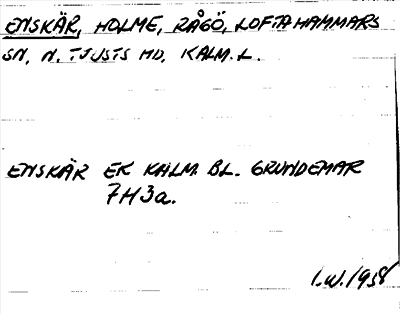 ENSKÄR, HOLME, RÅGÖ, LOFTAHAMMARS
SN, N. TJUSTS HD, KALM. L.
ENSKÄR EK KALM. BL. GRUNDEMAR
7H3a.
I.W. 1958